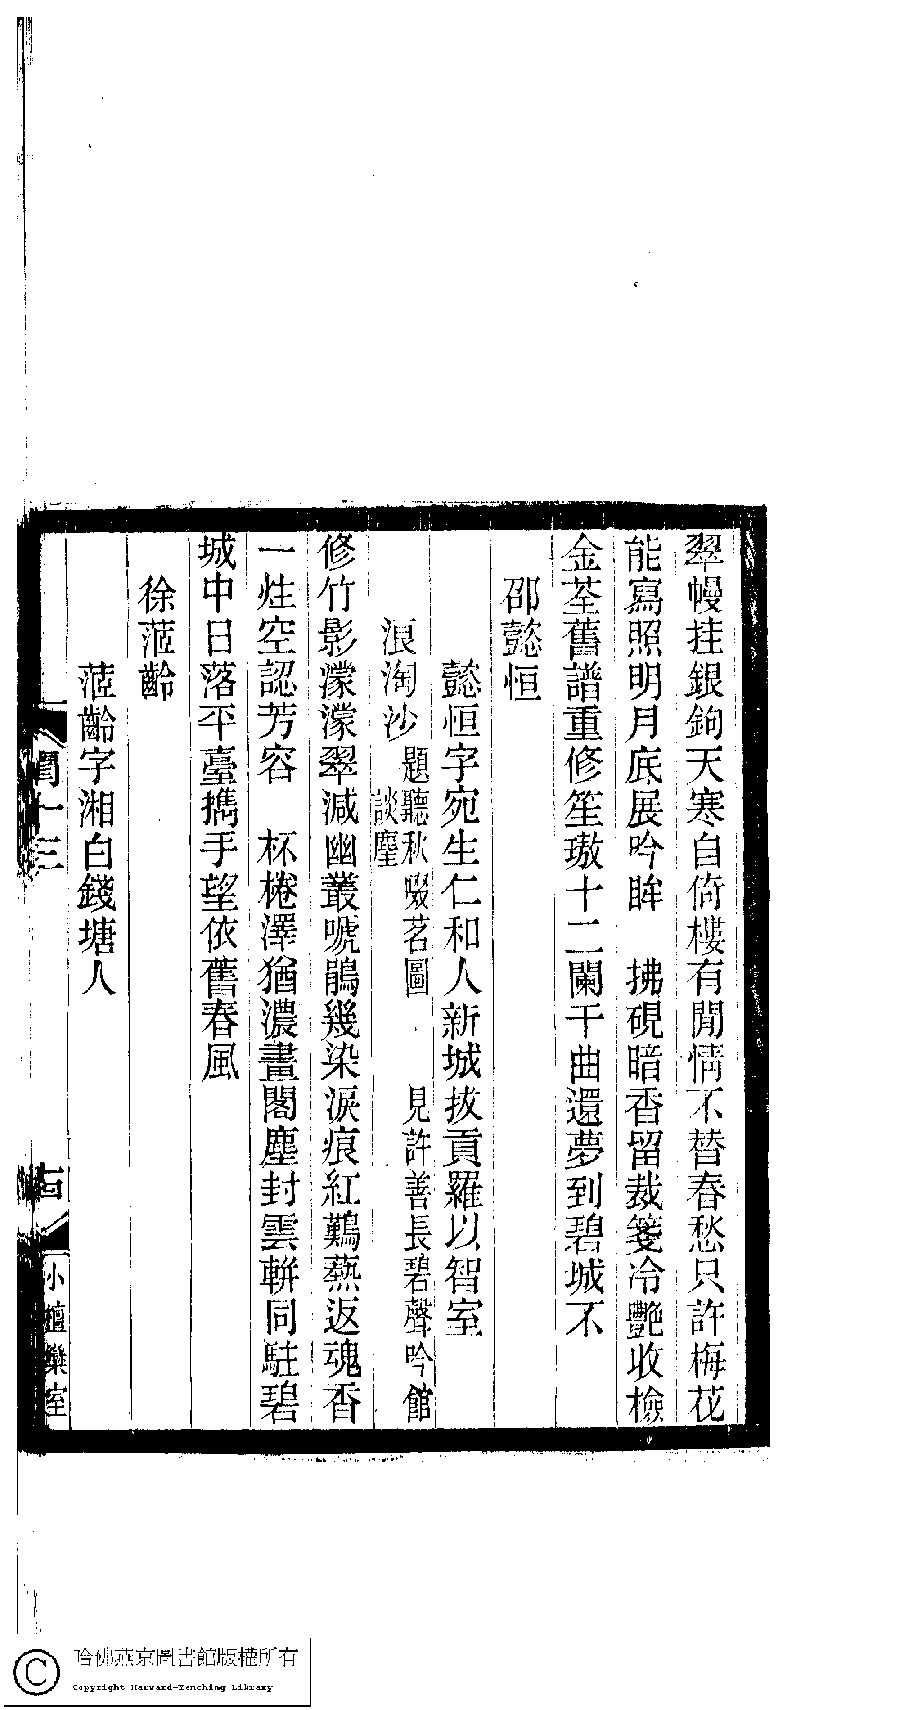 翠幔挂銀鉤天寒自倚樓有閒情不替春愁只許梅花
能寫照明月底展吟眸　拂硯暗香留裁箋冷艷收檢
金荃舊譜重修笙璈十二闌干曲還夢到碧城不
邵懿恒
懿恒字宛生仁和人新城拔貢羅以智室
浪淘沙　題聽秋啜茗圖　見許善長碧聲吟館
談麈
修竹影濛濛翠減幽叢唬鵑幾染淚痕紅鷜爇返魂香
一炷空認芳容　杯棬澤猶濃畫閣塵封雲輧同駐碧
城中日落平臺攜手望依舊春風
徐蒞齡
蒞齡字湘白錢塘人
閨十三
小檀欒室
哈佛燕京圖書館版權所有
Copyright Harvard-Yenching Library